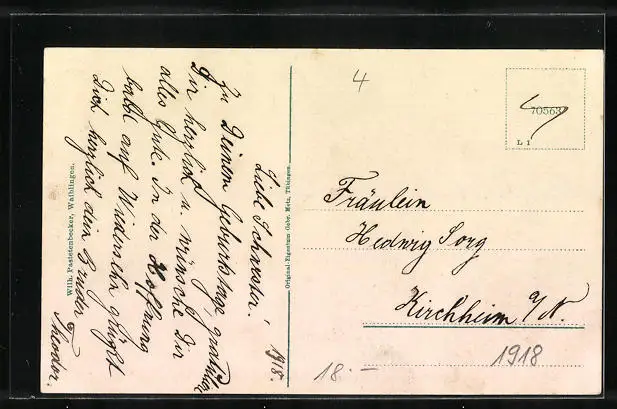 Liebe Schwester!
Zu Deinem Geburtstage, gratuliere
Dir herzlich u. wünsche Dir
alles Gute. In der Hoffnung
habe auf Wiedersehn grüßt
Dich herzlich dein Bruder
Theodor.
1918.
Wilh. Pastetenbecker, Waiblingen.
Original-Eigentum Gebr. Metz, Tübingen.
4
70563
L 1
Fräulein
Hedwig Sorg
Kirchheim a/N.
18.—
1918